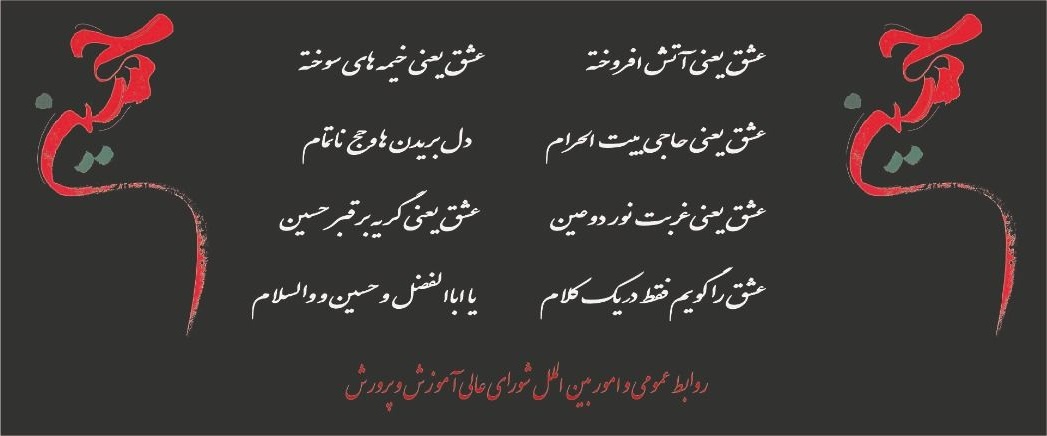 حسین
حسین
عشق یعنی آتش افروخته
عشق یعنی خیمه های سوخته
عشق یعنی حاجی بیت الحرام
دل بریدن ها و حج ناتمام
عشق یعنی غربت نور دو عین
عشق یعنی گریه بر قبر حسین
عشق را گویم فقط در یک کلام
یا ابا الفضل و حسین و والسلام
روابط عمومی و امور بین الملل شورای عالی آموزش و پرورش